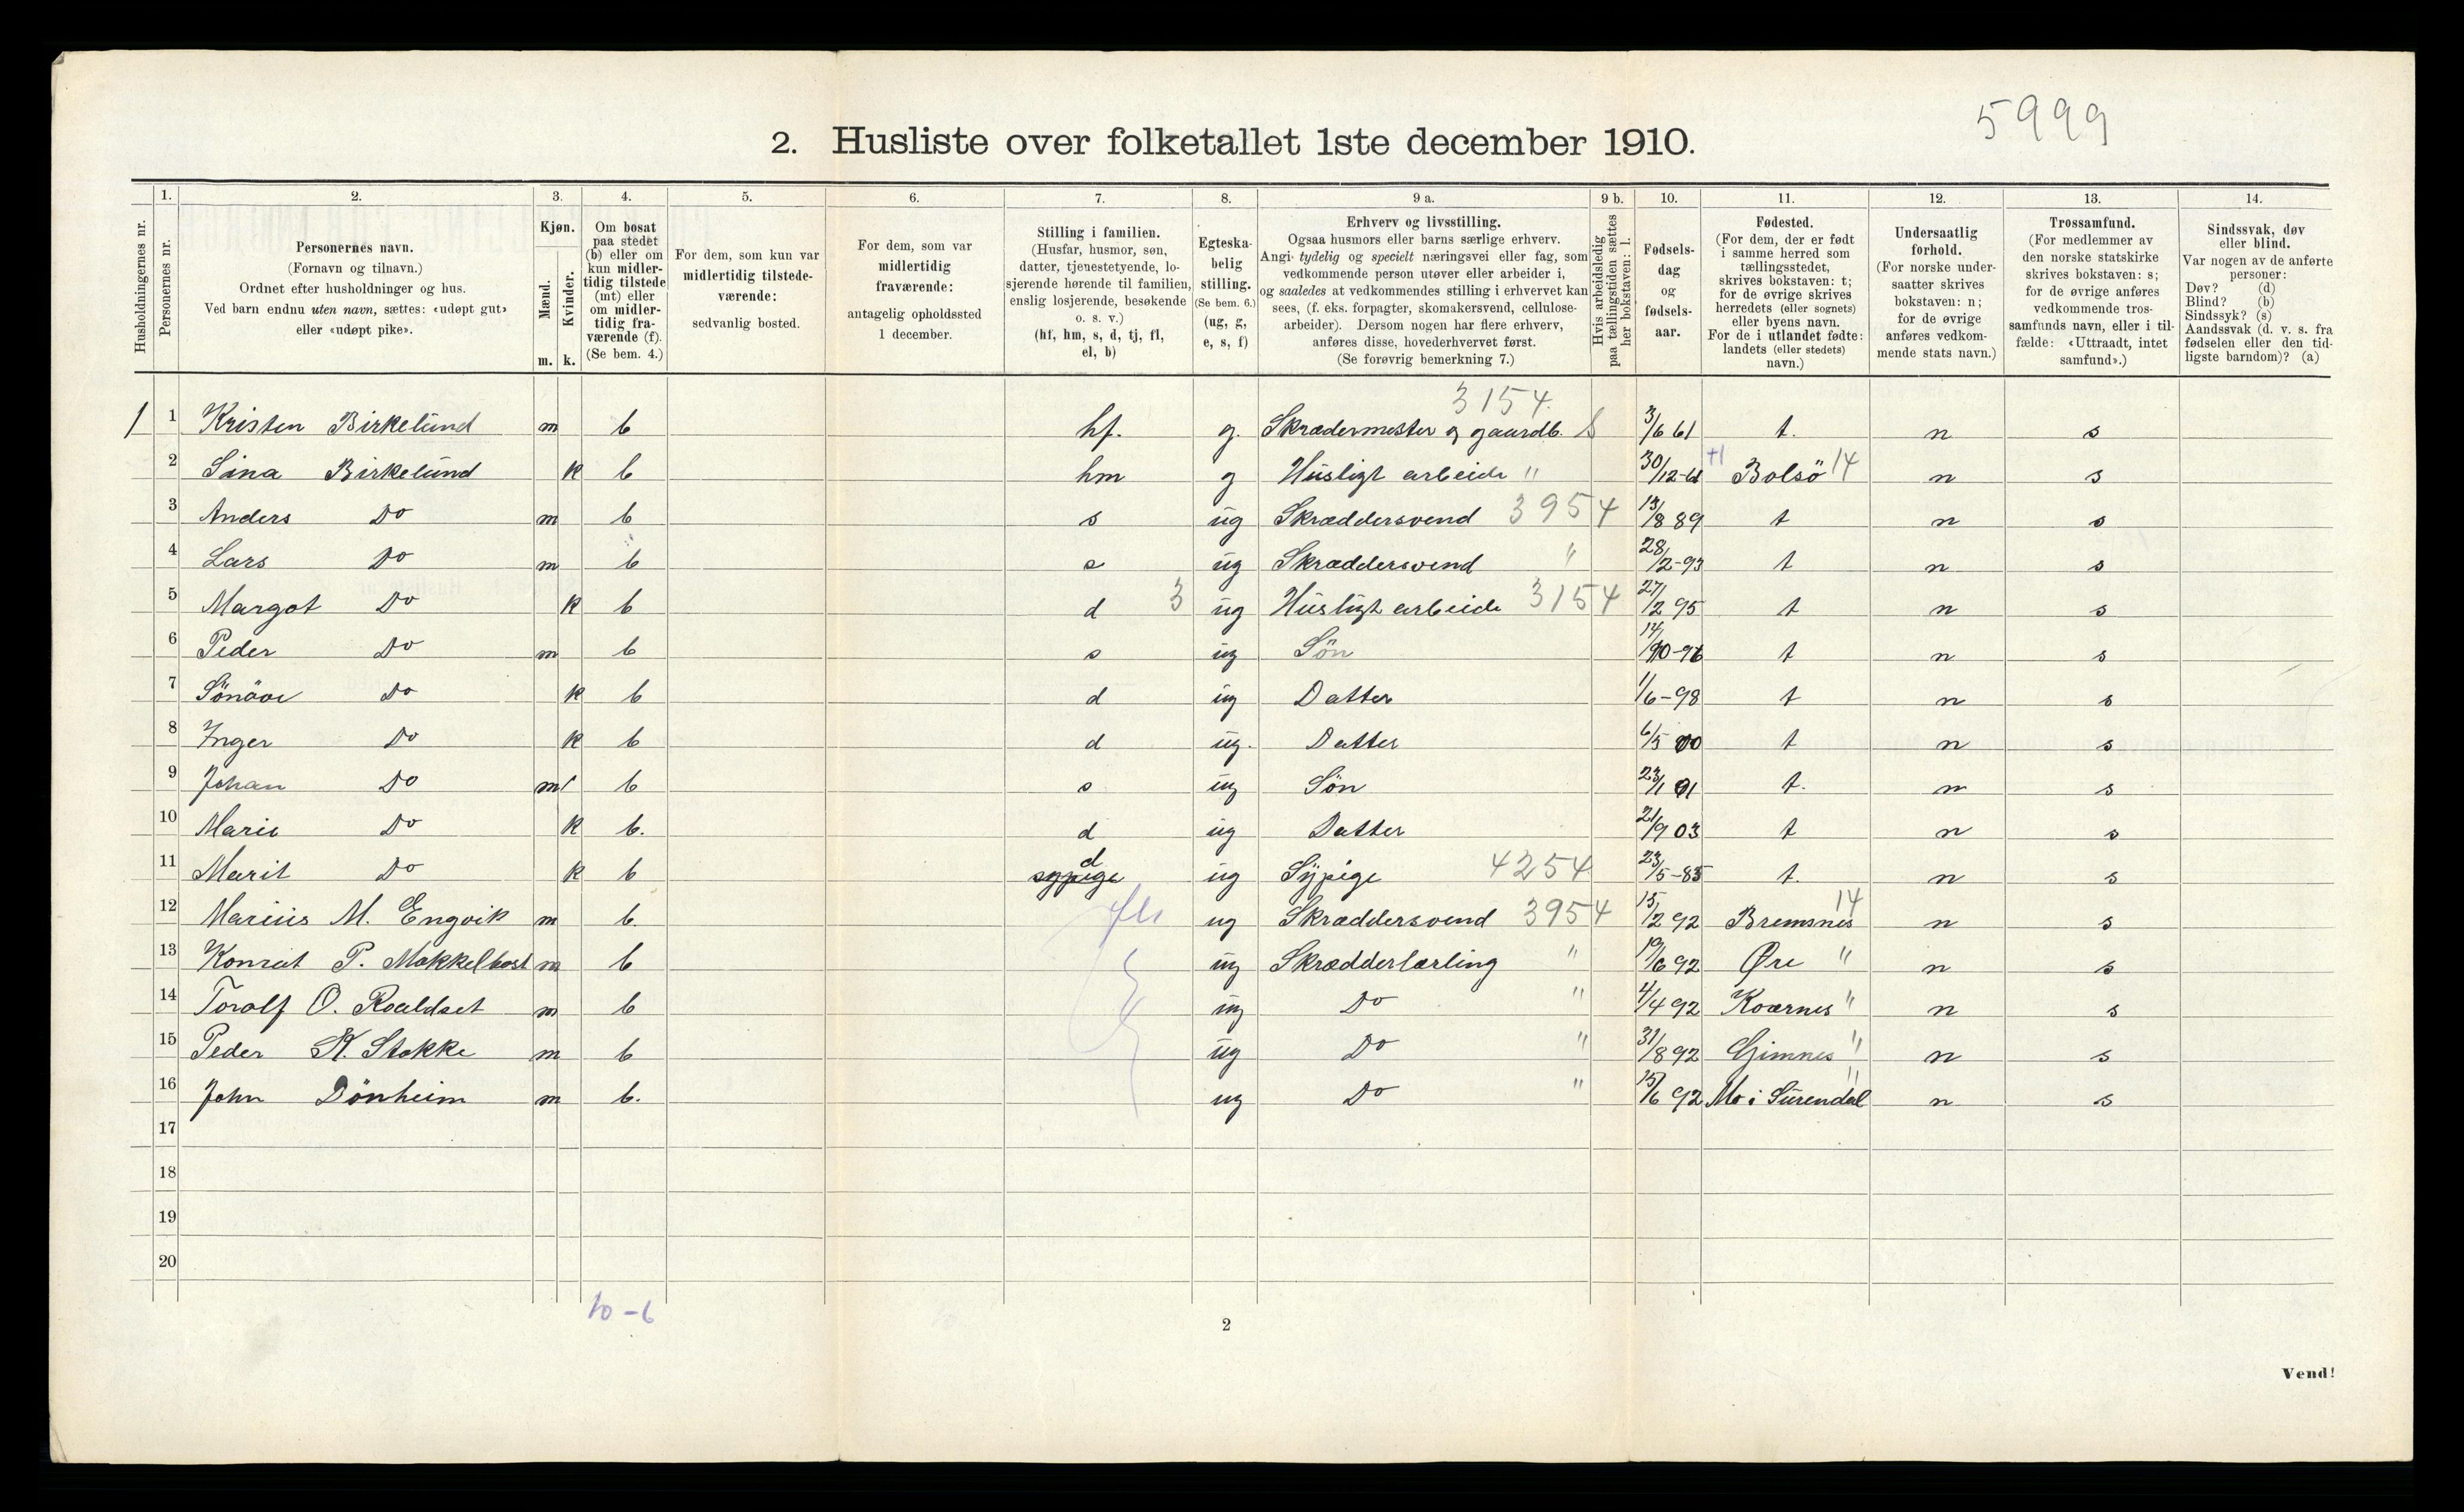 5999
2. Husliste over folketallet 1ste december 1910.
1. 2. 3. 4. 5. 6. 7. 8. 9 a. 9 b. 10. 11. 12. 13. 14.
Husholdningernes nr.
Personernes nr.
Personernes navn.
(Fornavn og tilnavn.)
Ordnet efter husholdninger og hus.
Ved barn endnu uten navn, sættes: «udøpt gut»
eller «udøpt pike».
Kjøn.
Mænd.
Kvinder.
m. k.
Om bosat
paa stedet
(b) eller om
kun midler-
tidig tilstede
(mt) eller
om midler-
tidig fra-
værende (f).
(Se bem. 4.)
For dem, som kun var
midlertidig tilstede-
værende:
sedvanlig bosted.
For dem, som var
midlertidig
fraværende:
antagelig opholdssted
1 december.
Stilling i familien.
(Husfar, husmor, søn,
datter, tjenestetyende, lo-
sjerende hørende til familien,
enslig losjerende, besøkende
o. s. v.)
(hf, hm, s, d, tj, fl,
el, b)
Egteska-
belig
stilling.
(Se bem. 6.)
(ug, g,
e, s, f)
Erhverv og livsstilling.
Ogsaa husmors eller barns særlige erhverv.
Angi tydelig og specielt næringsvei eller fag, som
vedkommende person utøver eller arbeider i,
og saaledes at vedkommendes stilling i erhvervet kan
sees, (f. eks. forpagter, skomakersvend, cellulose-
arbeider). Dersom nogen har flere erhverv,
anføres disse, hovederhvervet først.
(Se forøvrig bemerkning 7.)
Hvis arbeidsledig
paa tællingstiden sættes
her bokstaven: l.
Fødsels-
dag
og
fødsels-
aar.
Fødested.
(For dem, der er født
i samme herred som
tællingsstedet,
skrives bokstaven: t;
for de øvrige skrives
herredets (eller sognets)
eller byens navn.
For de i utlandet fødte:
landets (eller stedets)
navn.)
Undersaatlig
forhold.
(For norske under-
saatter skrives
bokstaven: n;
for de øvrige
anføres vedkom-
mende stats navn.)
Trossamfund.
(For medlemmer av
den norske statskirke
skrives bokstaven: s;
for de øvrige anføres
vedkommende tros-
samfunds navn, eller i til-
fælde: «Uttraadt, intet
samfund».)
Sindssvak, døv
eller blind.
Var nogen av de anførte
personer:
Døv? (d)
Blind? (b)
Sindssyk? (s)
Aandssvak (d. v. s. fra
fødselen eller den tid-
ligste barndom)? (a)
3154
1 1 Kristen Birkelund m b hf. g. Skrædermester og gaardb. S 3/6 61 t. n s
2 Sina Birkelund k b hm g Husligt arbeide " 30/12-61 +1 Bolsö 14 n s
3 Anders Do m b s ug Skræddersvend 3954 13/8 89 t n s
4 Lars Do m b s ug Skræddersvend " 28/2-93 t n s
5 Margot Do k b d 3 ug Husligt arbeide 3154 27/2 95 t n s
6 Peder Do m b s ug Sön t n s
7 Sönöve Do k b d ug Datter 1/6-98 t n s
8 Inger Do k b d ug. Datter 6/5 00 t n s
9 Johan Do m b s ug Sön 23/1 01 t. n s
10 Marie Do k b. d ug Datter 21/9 03 t n s
11 Marit Do k b sypige d ug Sypige 4254 23/5-85 t. n s
12 Marius M. Engvik m b. fl ug Skræddersvend 3954 15/2 92 Bremsnes 14 n s
13 Konrat P. Mokkelbost m b ug Skrædderlærling " 19/6 92 Øre " n s
14 Torolf O. Roaldset m b ug Do " 4/4 92 Kværnes " n s
15 Peder K. Stokke m b ug Do " 31/8 92 Gimnes " n s
16 John Dönheim m b. ug Do " 15/6 92 Mo i Surendal " n s
17
18
19
20
10-6
2
Vend!